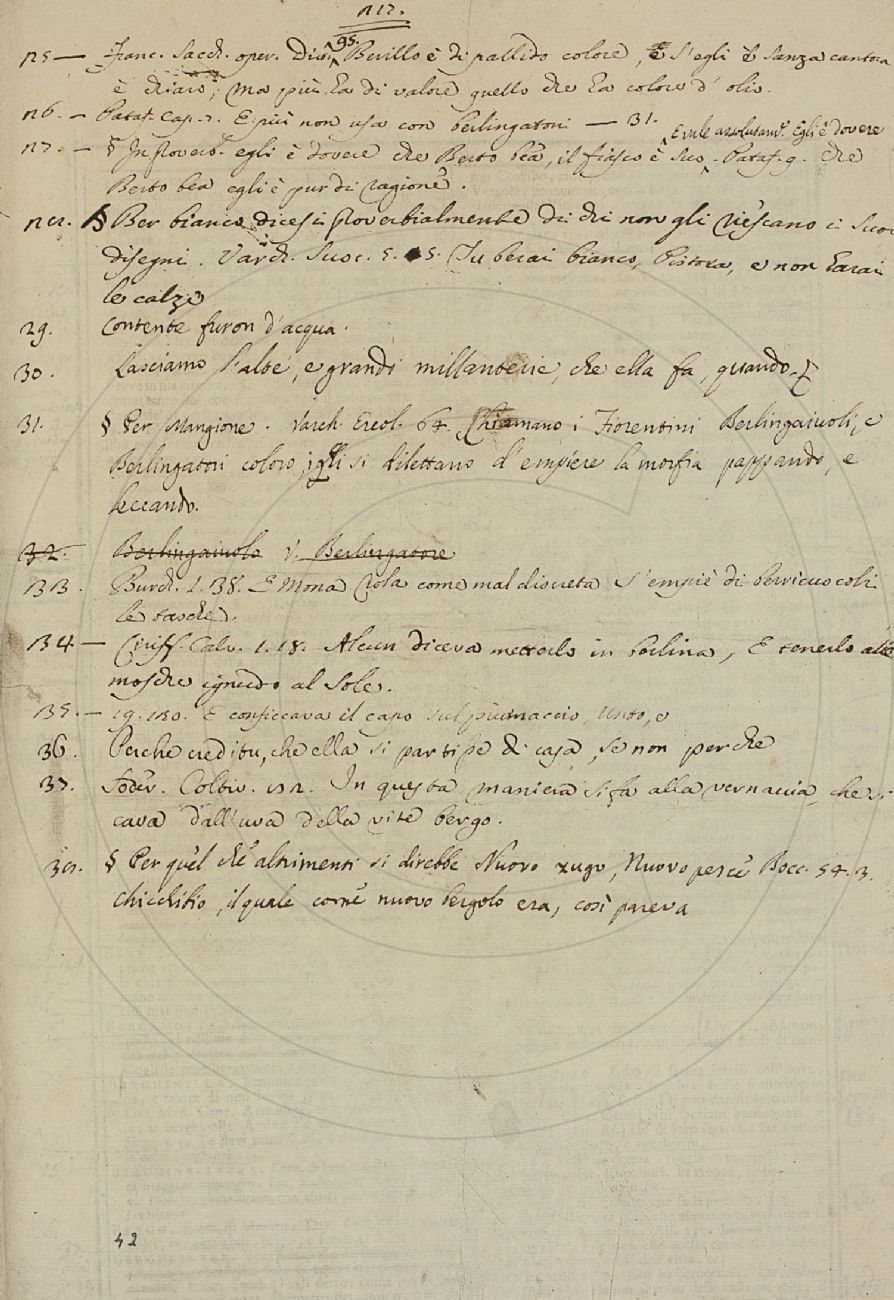 212.
125 — Franc. Sacch. oper. Div. 95. Berillo è di pallido colore, E s'egli è sanza cantora
è chiaro, ma più ha di valore quello che ha colore d'olio.
126. — Pataf. Cap. 7. E più non usa con berlingatori — 31.
E vale assolutam.e Egli è dovere
127. — § In proverb. egli è dovere che Berto bea, il fiasco è suo. Pataf. 9. Che
Berto bea egli è pur di ragione.
128. § Ber bianco, dicesi proverbialmente di chi non gli riescano i suoi
disegni. Varch. Suoc. 5. 5. Tu berai bianco, Pistoia, e non harai
le calze
29. Contente furon d'acqua.
30. Lasciamo l'alte, e grandi millanterie, che ella fa, quando
31. § Per Mangione. Varch. Ercol. 64. Chiamano i Fiorentini Berlingaiuoli, e
Berlingatori coloro, i quali si dilettano d'empiere la morfia pappando, e
leccando.
32. Berlingaiuolo V. Berlingatore
133. Burch. 1. 38. E Mona Ciola come mal discreta S'empiè di berricuocoli
le tasche.
134 — Ciriff. Calv. 1. 18. Alcun diceva metterlo in berlina, E tenerlo alle
mosche ignudo al Sole.
135. — 19. 130. E conficcava il capo sul piumaccio, unto, e
36. Perche credi tu, che ella si partisse di casa, se non perche
37. Soder. Coltiv. 122. In questa maniera si fa alla vernaccia, che si
cava dall'uva della vite bergo.
38. § Per quel che altrimenti si direbbe Nuovo zugo, Nuovo pesce Bocc. 54. 3.
Chichibio, il quale come nuovo bergolo era, così pareva
42